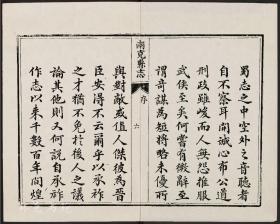 蜀志之中空外之音聽者
自不察耳開誠心布公道
刑政雖峻而人無怨推服
武侯至矣何嘗有微辭至
謂奇謀為短將略未優所
南充縣志
序
六
與對敵或值人傑彼為晉
臣安得不云爾乎以承祚
之才猶不免於後人之議
論其他則又何說自承祚
作志以来千數百年間煌